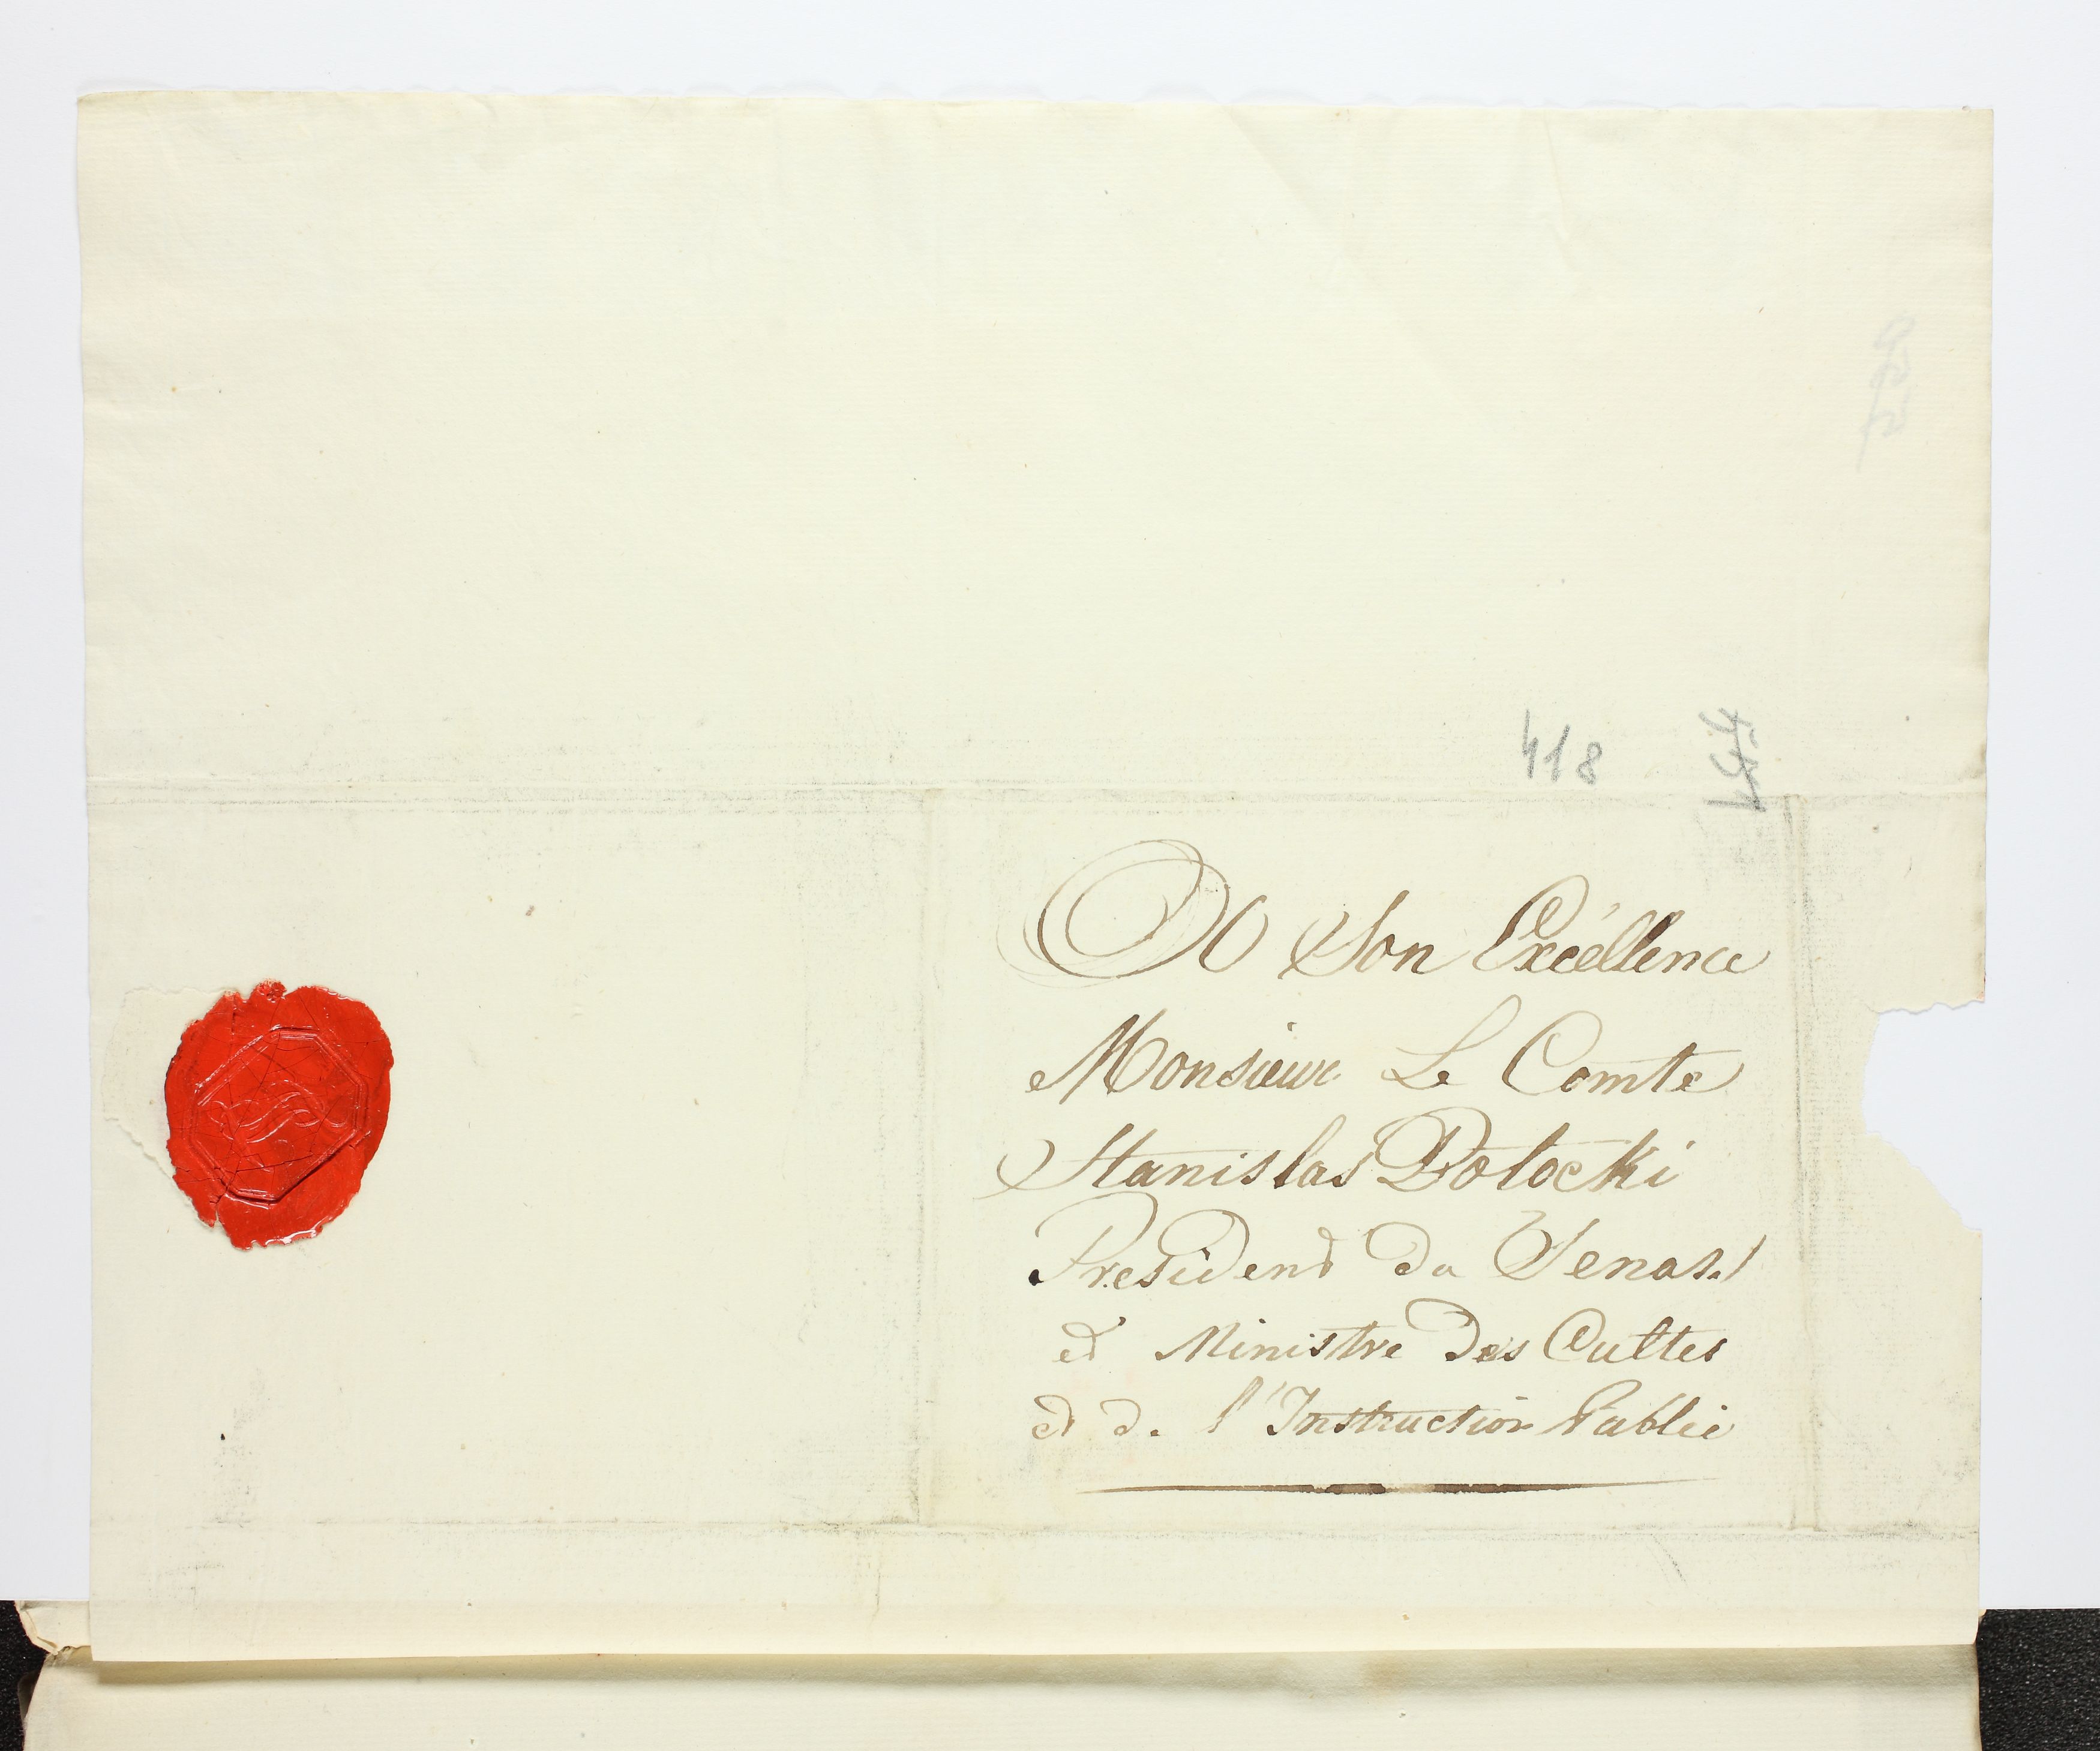 418
A Son Excéllence
Monsieur Le Comte
Stanislas Potocki
President du Senat
et Ministre Des Cultes
et de l'Instruction Public